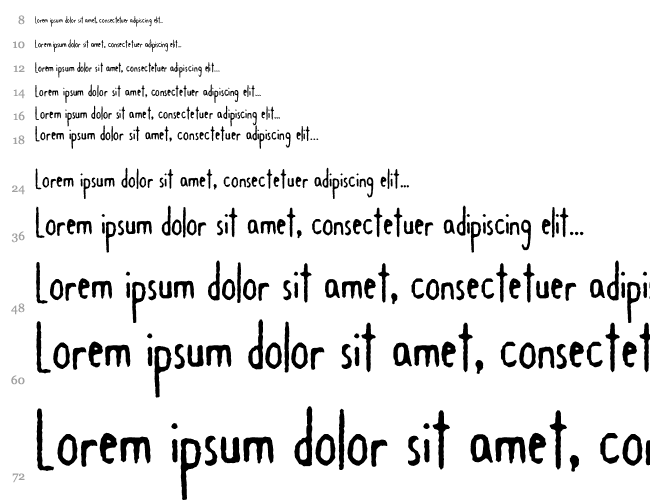 8 Lorem ipsum dolor sit amet, consectetuer adipiscing elit...
10 Lorem ipsum dolor sit amet, consectetuer adipiscing elit...
12 Lorem ipsum dolor sit amet, consectetuer adipiscing elit...
14 Lorem ipsum dolor sit amet, consectetuer adipiscing elit...
16 Lorem ipsum dolor sit amet, consectetuer adipiscing elit...
18 Lorem ipsum dolor sit amet, consectetuer adipiscing elit...
24 Lorem ipsum dolor sit amet, consectetuer adipiscing elit...
36 Lorem ipsum dolor sit amet, consectetuer adipiscing elit...
48 Lorem ipsum dolor sit amet, consectetuer adipis
60 Lorem ipsum dolor sit amet, consectet
72 Lorem ipsum dolor sit amet, con